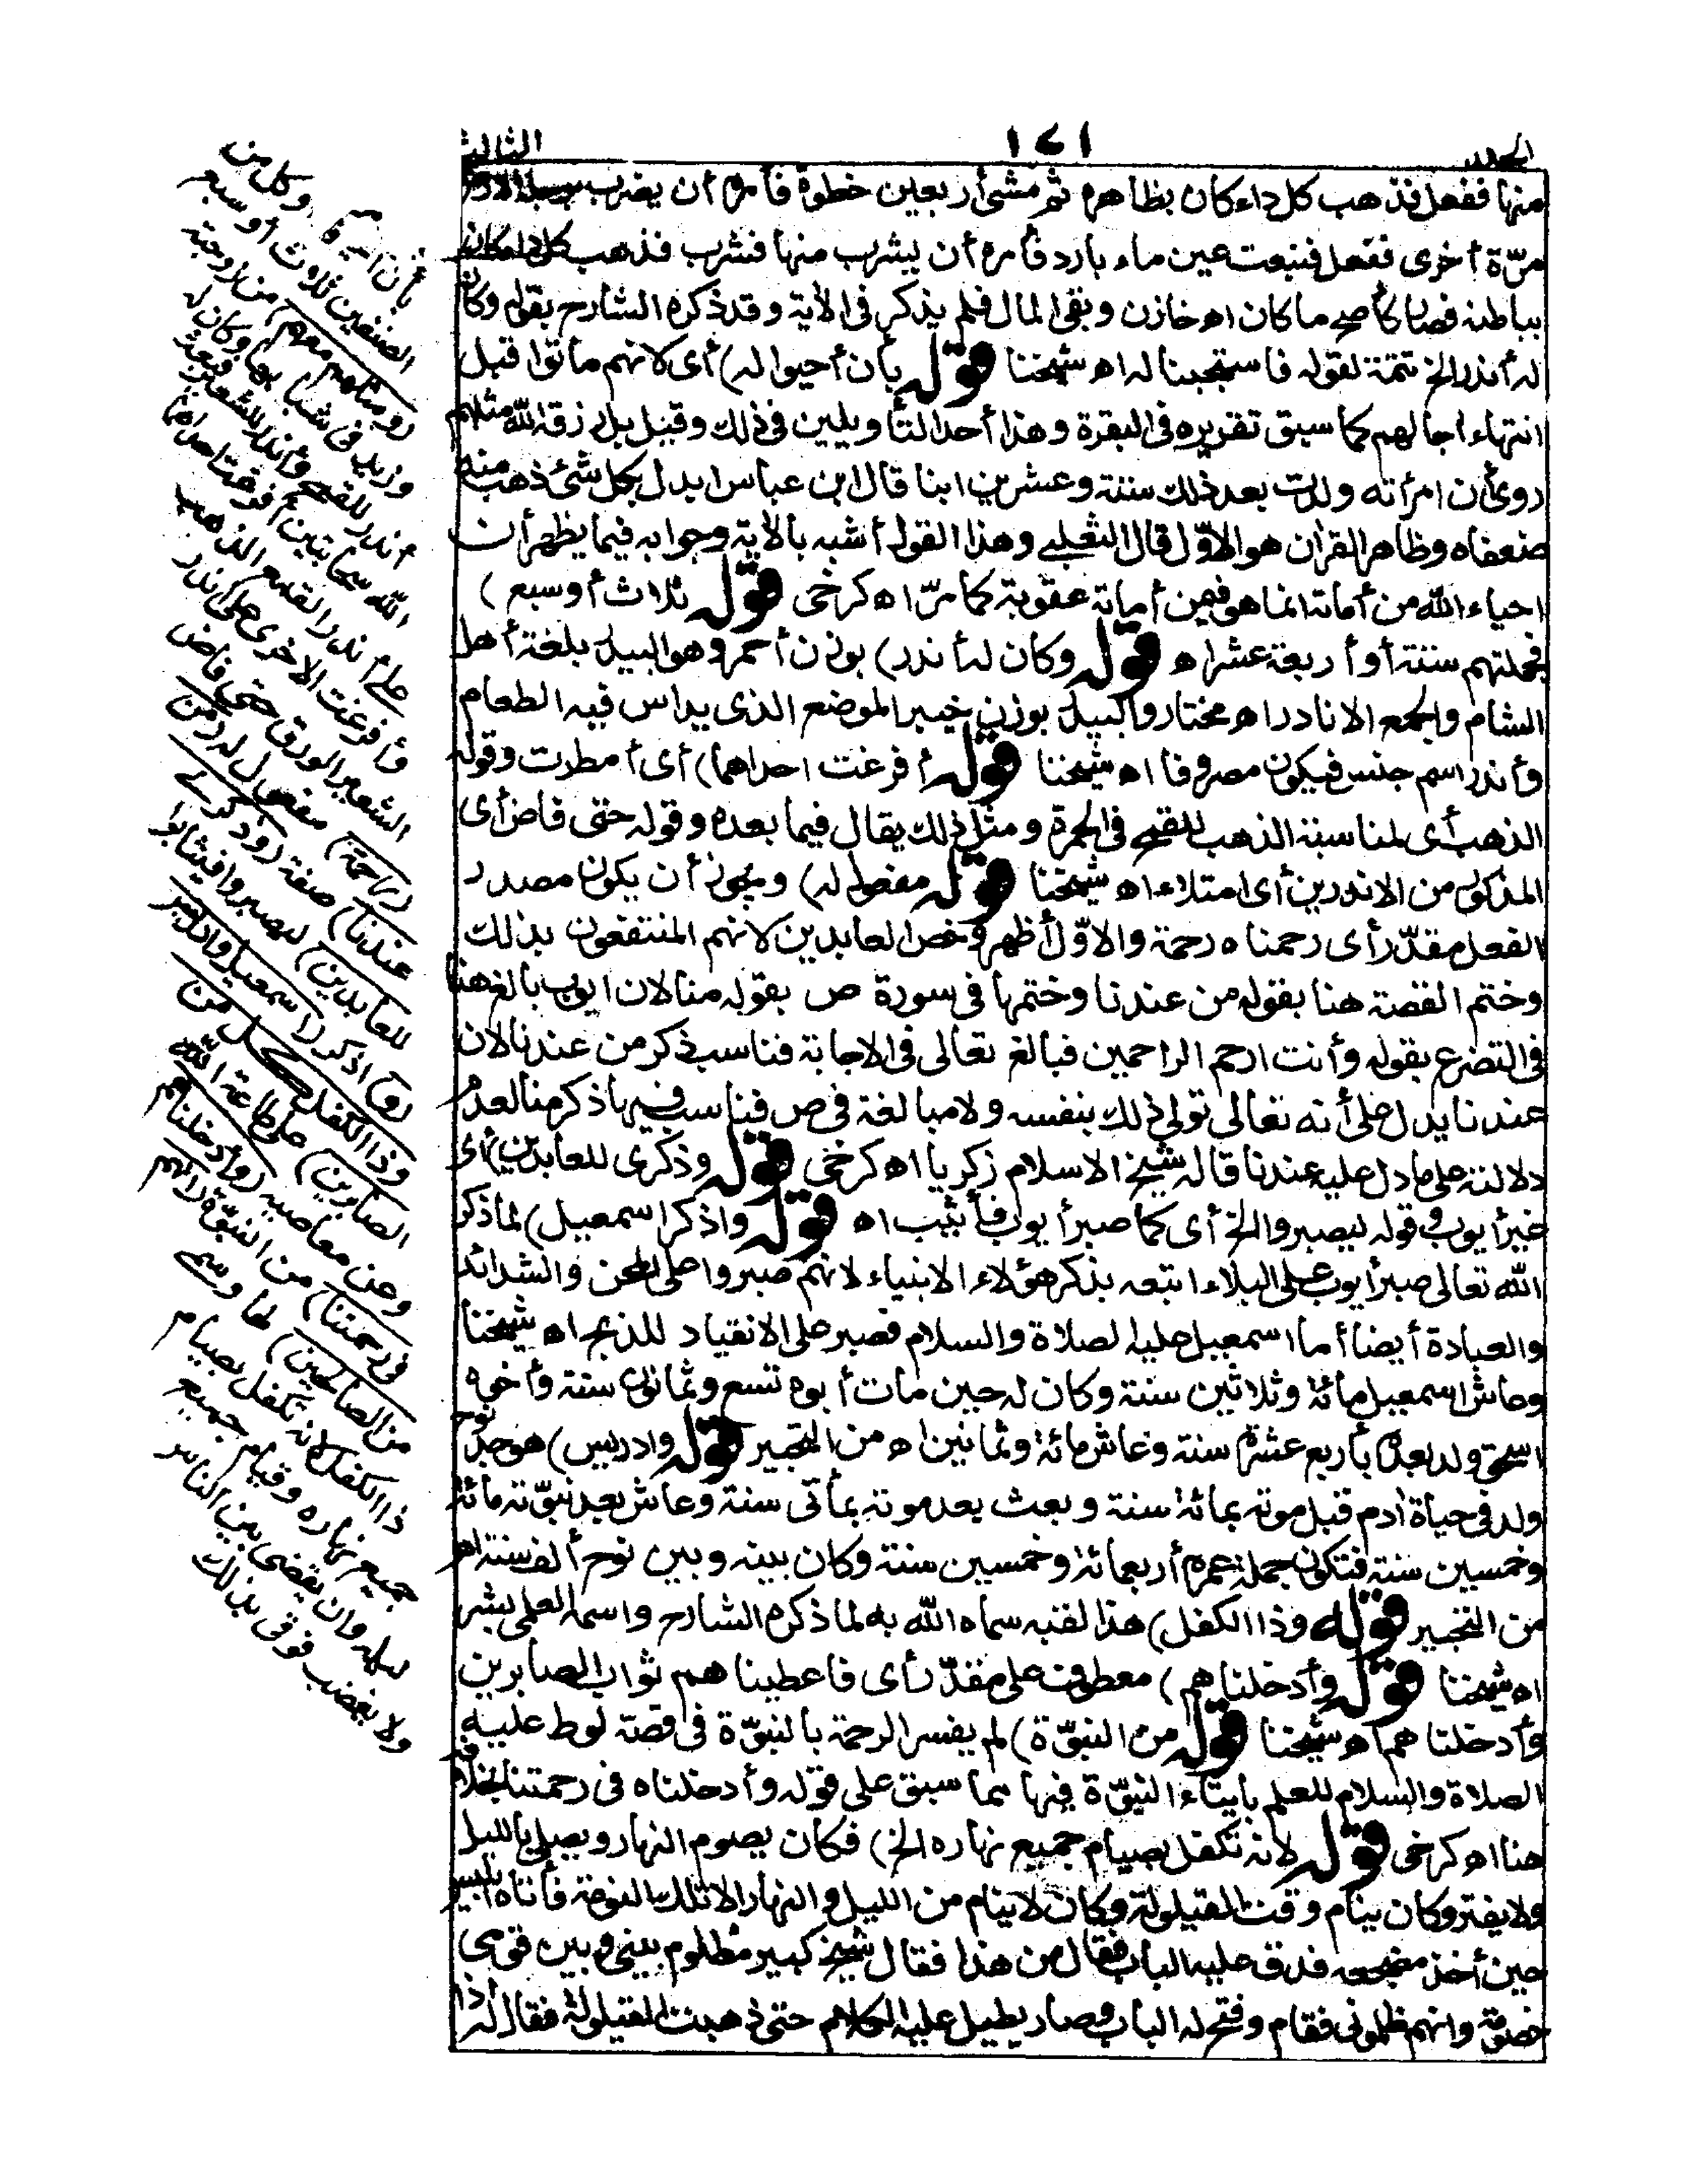 الجلد ١٤١ الثالث
منها ففعل فذهب كل داء كان بظاهره ثم مشى أربعين خطوة فأمره أن يضرب برجله الارض
مرّة أخرى ففعل فنبعت عين ماء بارد فأمره أن يشرب منها فشرب فذهب كل داء كان
بباطنه فصار كأصح ما كان اه خازن وبقى المال فلم يذكر فى الاية وقد ذكره الشارح بقوله وكان
له أندر الخ تتمة لقوله فاستجبنا له اه شيخنا قوله بأن أحيوا له) أى لانهم ماتوا قبل
انتهاء اجالهم كما سبق تقريره فى البقرة وهذا أحد التأويلين فى ذلك وقيل بل رزقه الله مثلهم
روى أن امرأته ولدت بعد ذلك ستة وعشرين ابنا قال ابن عباس ابدل بكل شئ ذهب منه
ضعفاه وظاهر القران هو الاوّل قال الثعلبى وهذا القول أشبه بالاية وجوابه فيما يظهر أن
احياء الله من أماته انما هو فيمن أماته عقوبة كما مرّ اه كرخى قوله ثلاث أو سبع)
فجملتهم ستة أو أربعة عشر اه قوله وكان له أندر) بوزن أحمر وهو البيدر بلغة أهل
الشام والجمع الانادر اه مختار والبيدر بوزن خيبر الموضع الذى يداس فيه الطعام
وأندر اسم جنس فيكون مصروفا اه شيخنا قوله أفرغت احداهما) أى أمطرت وقوله
الذهب أى لمناسبة الذهب للقمح فى الحمرة ومثل ذلك يقال فيما بعده وقوله حتى فاض أى
المذكور من الاندرين أى امتلاء اه شيخنا قوله مفعول له) ويجوز أن يكون مصدر
الفعل مقدّر أى رحمناه رحمة والاوّل أظهر وخص العابدين لانهم المنتفعون بذلك
وختم القصة هنا بقوله من عندنا وختمها فى سورة ص بقوله منا لان ايوب بالغ هنا
فى التضرع بقوله وأنت ارحم الراحمين فبالغ تعالى فى الاجابة فناسب ذكر من عندنا لان
عندنا يدل على أنه تعالى تولى ذلك بنفسه ولا مبالغة فى ص فناسب فيها ذكر منا لعدم
دلالته على ما دل عليه عندنا قاله شيخ الاسلام زكريا اه كرخى قوله وذكرى للعابدين) أى
خبر أيوب وقوله ليصبروا الخ أى كما صبر أيوب فأثيب اه قوله واذكر اسمعيل) لما ذكر
الله تعالى صبر أيوب على البلاء اتبعه بذكر هؤلاء الانبياء لانهم صبروا على المحن والشدائد
والعبادة أيضا أما اسمعيل عليه الصلاة والسلام فصبر على الانقياد للذبح اه شيخنا
وعاش اسمعيل مائة وثلاثين سنة وكان له حين مات أبوه تسع وثمانون سنة وأخوه
اسحق ولد بعده بأربع عشرة سنة وعاش مائة وثمانين اه من التحبير قوله وادريس) هو جد نوح
ولد فى حياة ادم قبل موته بمائة سنة وبعث بعد موته بمأتى سنة وعاش بعد نبوّته مائة
وخمسين سنة فتكون جملة عمره أربعمائة وخمسين سنة وكان بينه وبين نوح ألف سنة اه
من التحبير قوله وذا الكفل) هذا لقبه سماه الله به لما ذكره الشارح واسمه العلمى بشر
اه شيخنا قوله وأدخلناهم) معطوف على مقدّر أى فاعطيناهم ثواب الصابرين
وأدخلناهم اه شيخنا قوله من النبوّة) لم يفسر الرحمة بالنبوّة فى قصة لوط عليه
الصلاة والسلام للعلم بايتاء النبوّة فيها مما سبق على قوله وأدخلناه فى رحمتنا بخلافه
هنا اه كرخى قوله لانه تكفل بصيام جميع نهاره الخ) فكان يصوم النهار ويصلى بالليل
ولا يفتر وكان ينام وقت القيلولة وكان لا ينام من الليل والنهار الا تلك النومة فأتاه ابليس
حين أخذ مضجعه فدق عليه الباب فقال من هذا فقال شيخ كبير مظلوم بينى وبين قومى
خصومة وانهم ظلمونى فقام وفتح له الباب وصار يطيل عليه الكلام حتى ذهبت القيلولة فقال له اذا
وكل من
الصنفين ثلاث أو سبع
(ومثلهم معهم) من زوجته
وزيد فى شبابها وكان له
أندر للقمح وأندر للشعير فبعث
الله سحابتين أفرغت احداهما
على أندر القمح الذهب
وأفرغت الاخرى على أندر
الشعير الورق حتى فاض
(رحمة) مفعول له (من
عندنا) صفة (وذكرى
للعابدين) ليصبروا فيثابوا
(و) اذكر (اسمعيل وادريس
وذا الكفل كل من
الصابرين) على طاعة الله
وعن معاصيه (وأدخلناهم
فى رحمتنا) من النبوّة (انهم
من الصالحين) لها وسمى
ذا الكفل لانه تكفل بصيام
جميع نهاره وقيام جميع
ليله وان يقضى بين الناس
ولا يغضب فوفى بذلك